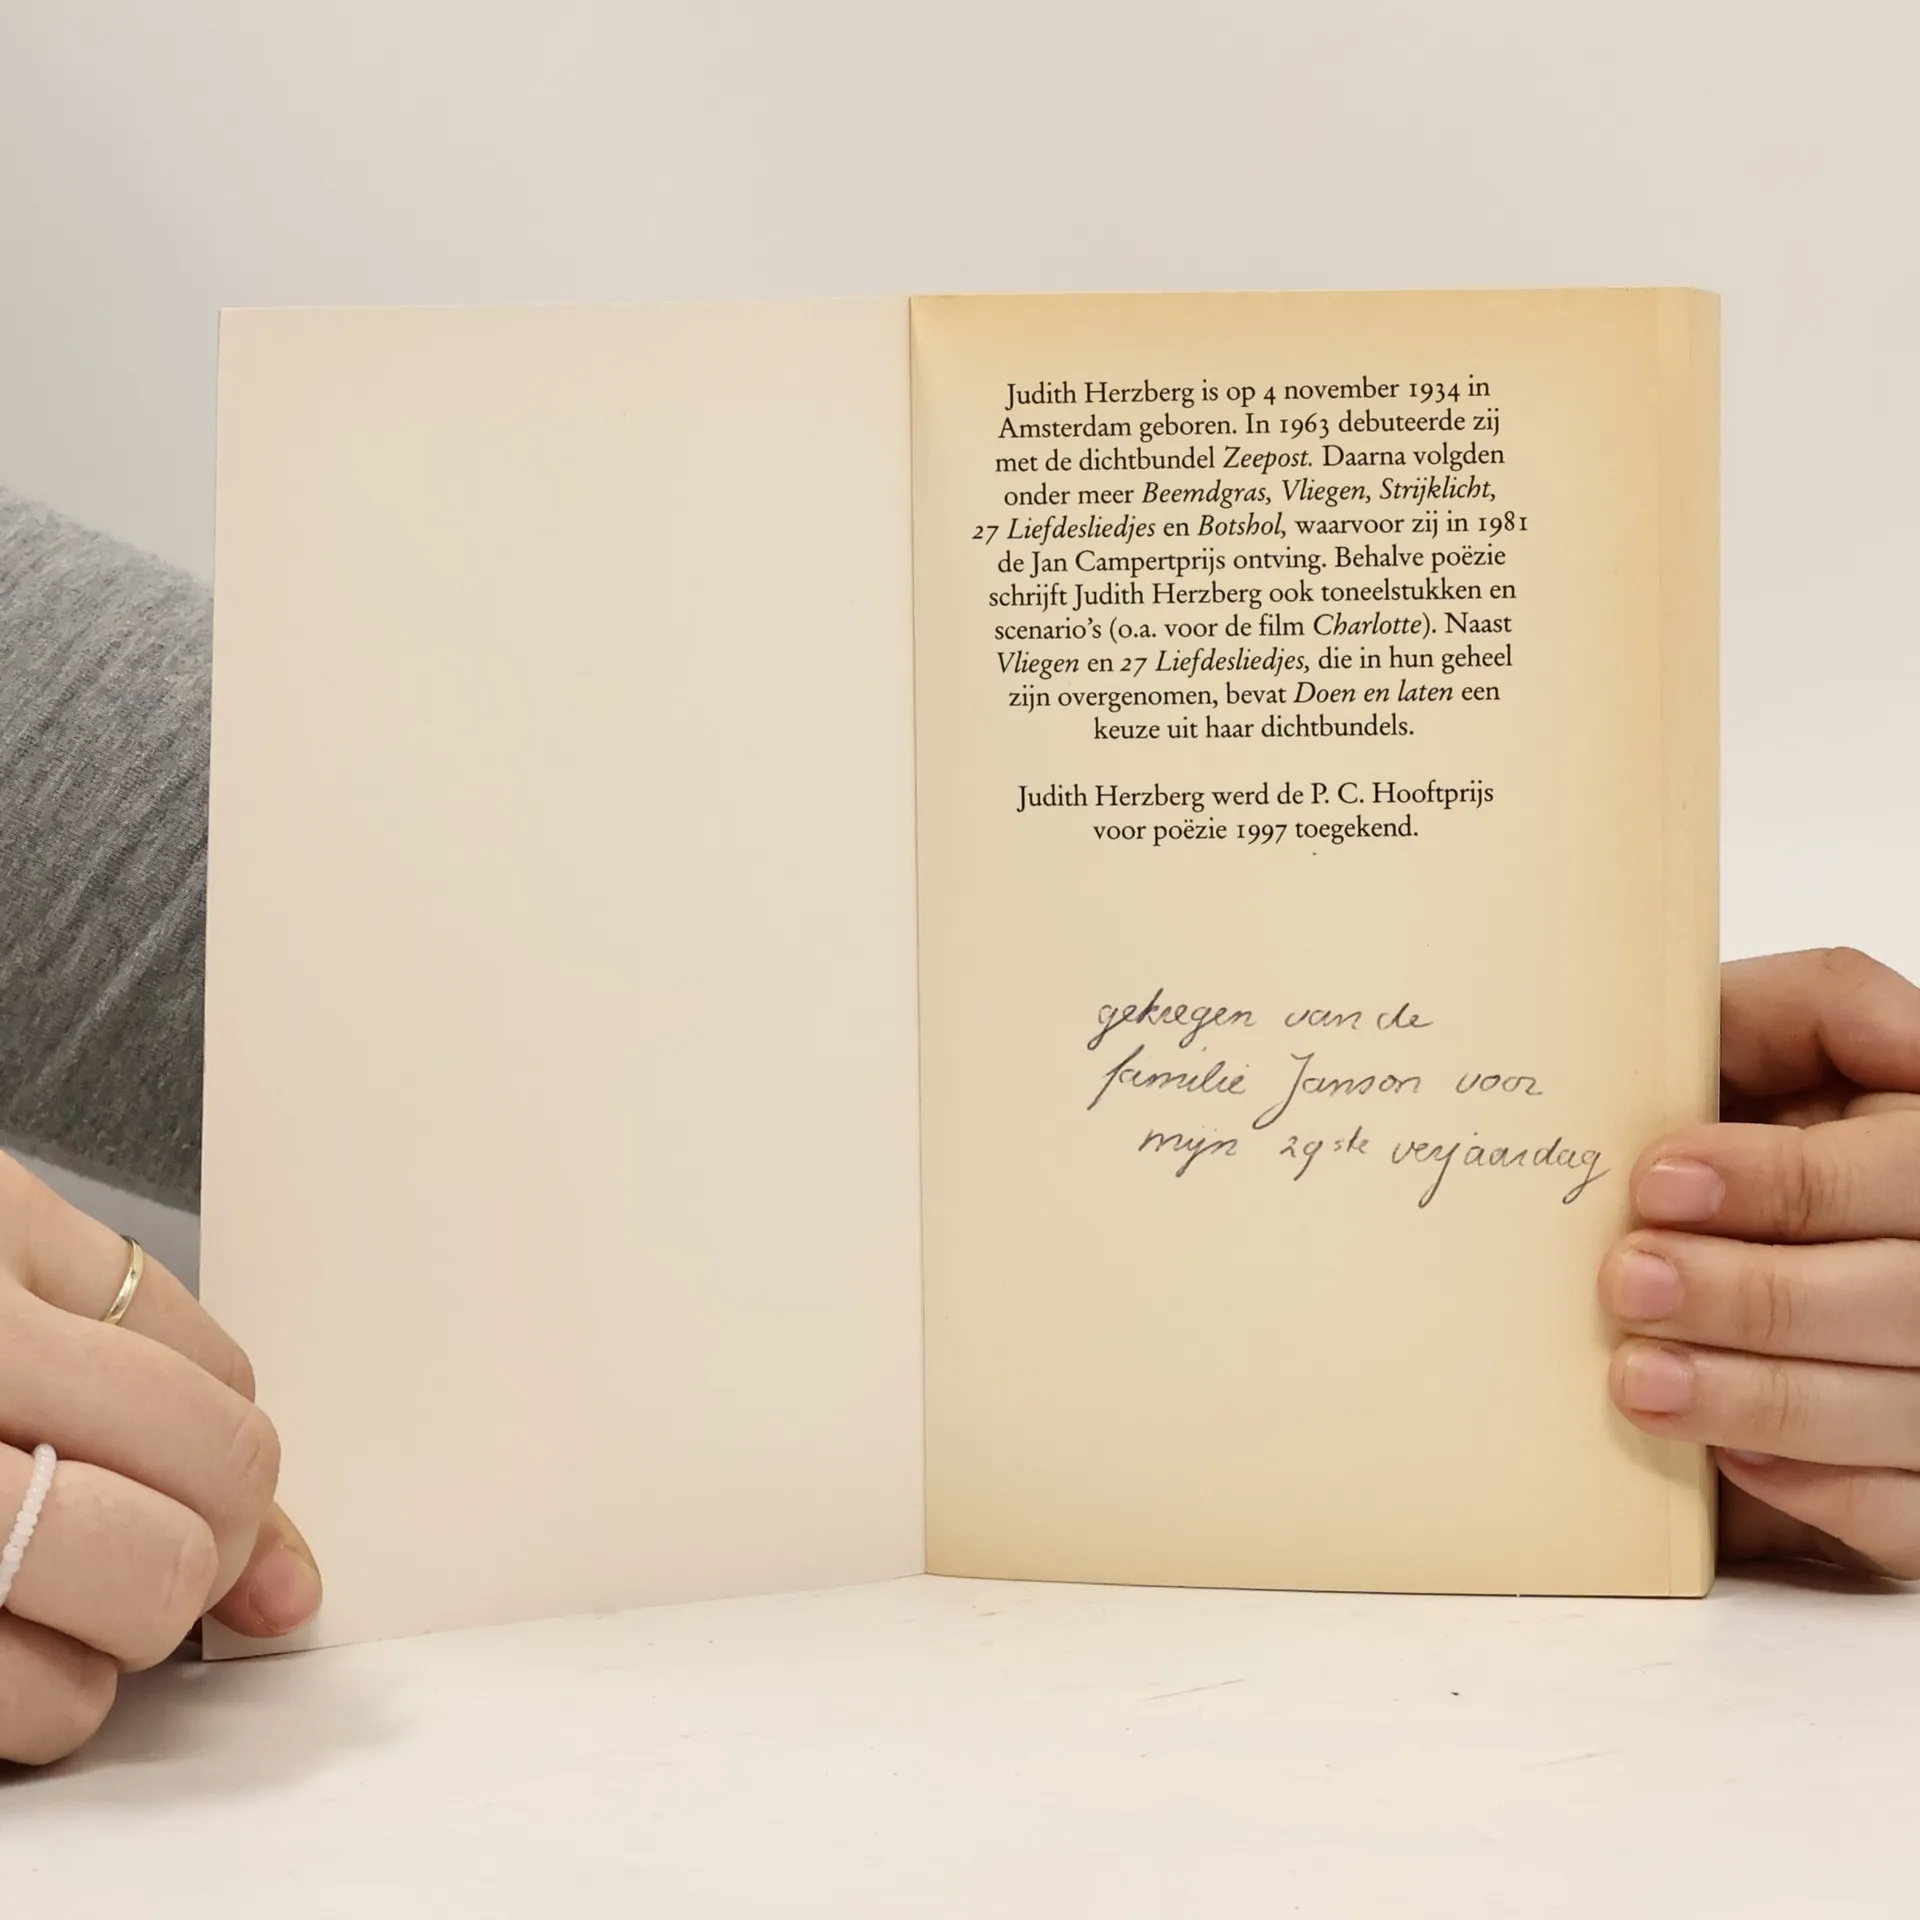 Judith Herzberg is op 4 november 1934 in
Amsterdam geboren. In 1963 debuteerde zij
met de dichtbundel Zeepost. Daarna volgden
onder meer Beemdgras, Vliegen, Strijklicht,
27 Liefdesliedjes en Botshol, waarvoor zij in 1981
de Jan Campertprijs ontving. Behalve poëzie
schrijft Judith Herzberg ook toneelstukken en
scenario's (o.a. voor de film Charlotte). Naast
Vliegen en 27 Liefdesliedjes, die in hun geheel
zijn overgenomen, bevat Doen en laten een
keuze uit haar dichtbundels.
Judith Herzberg werd de P. C. Hooftprijs
voor poëzie 1997 toegekend.
gekregen van de
familie Janson voor
mijn 29ste verjaardag